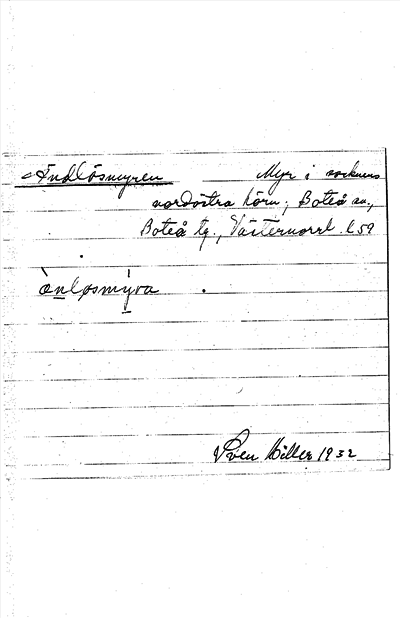 Ändlösmyren Myr i socknens
nordöstra hörn; Boteå sn.,
Boteå tg., Västernorrl. l.
ònløsmýra
Sven Hiller 1932